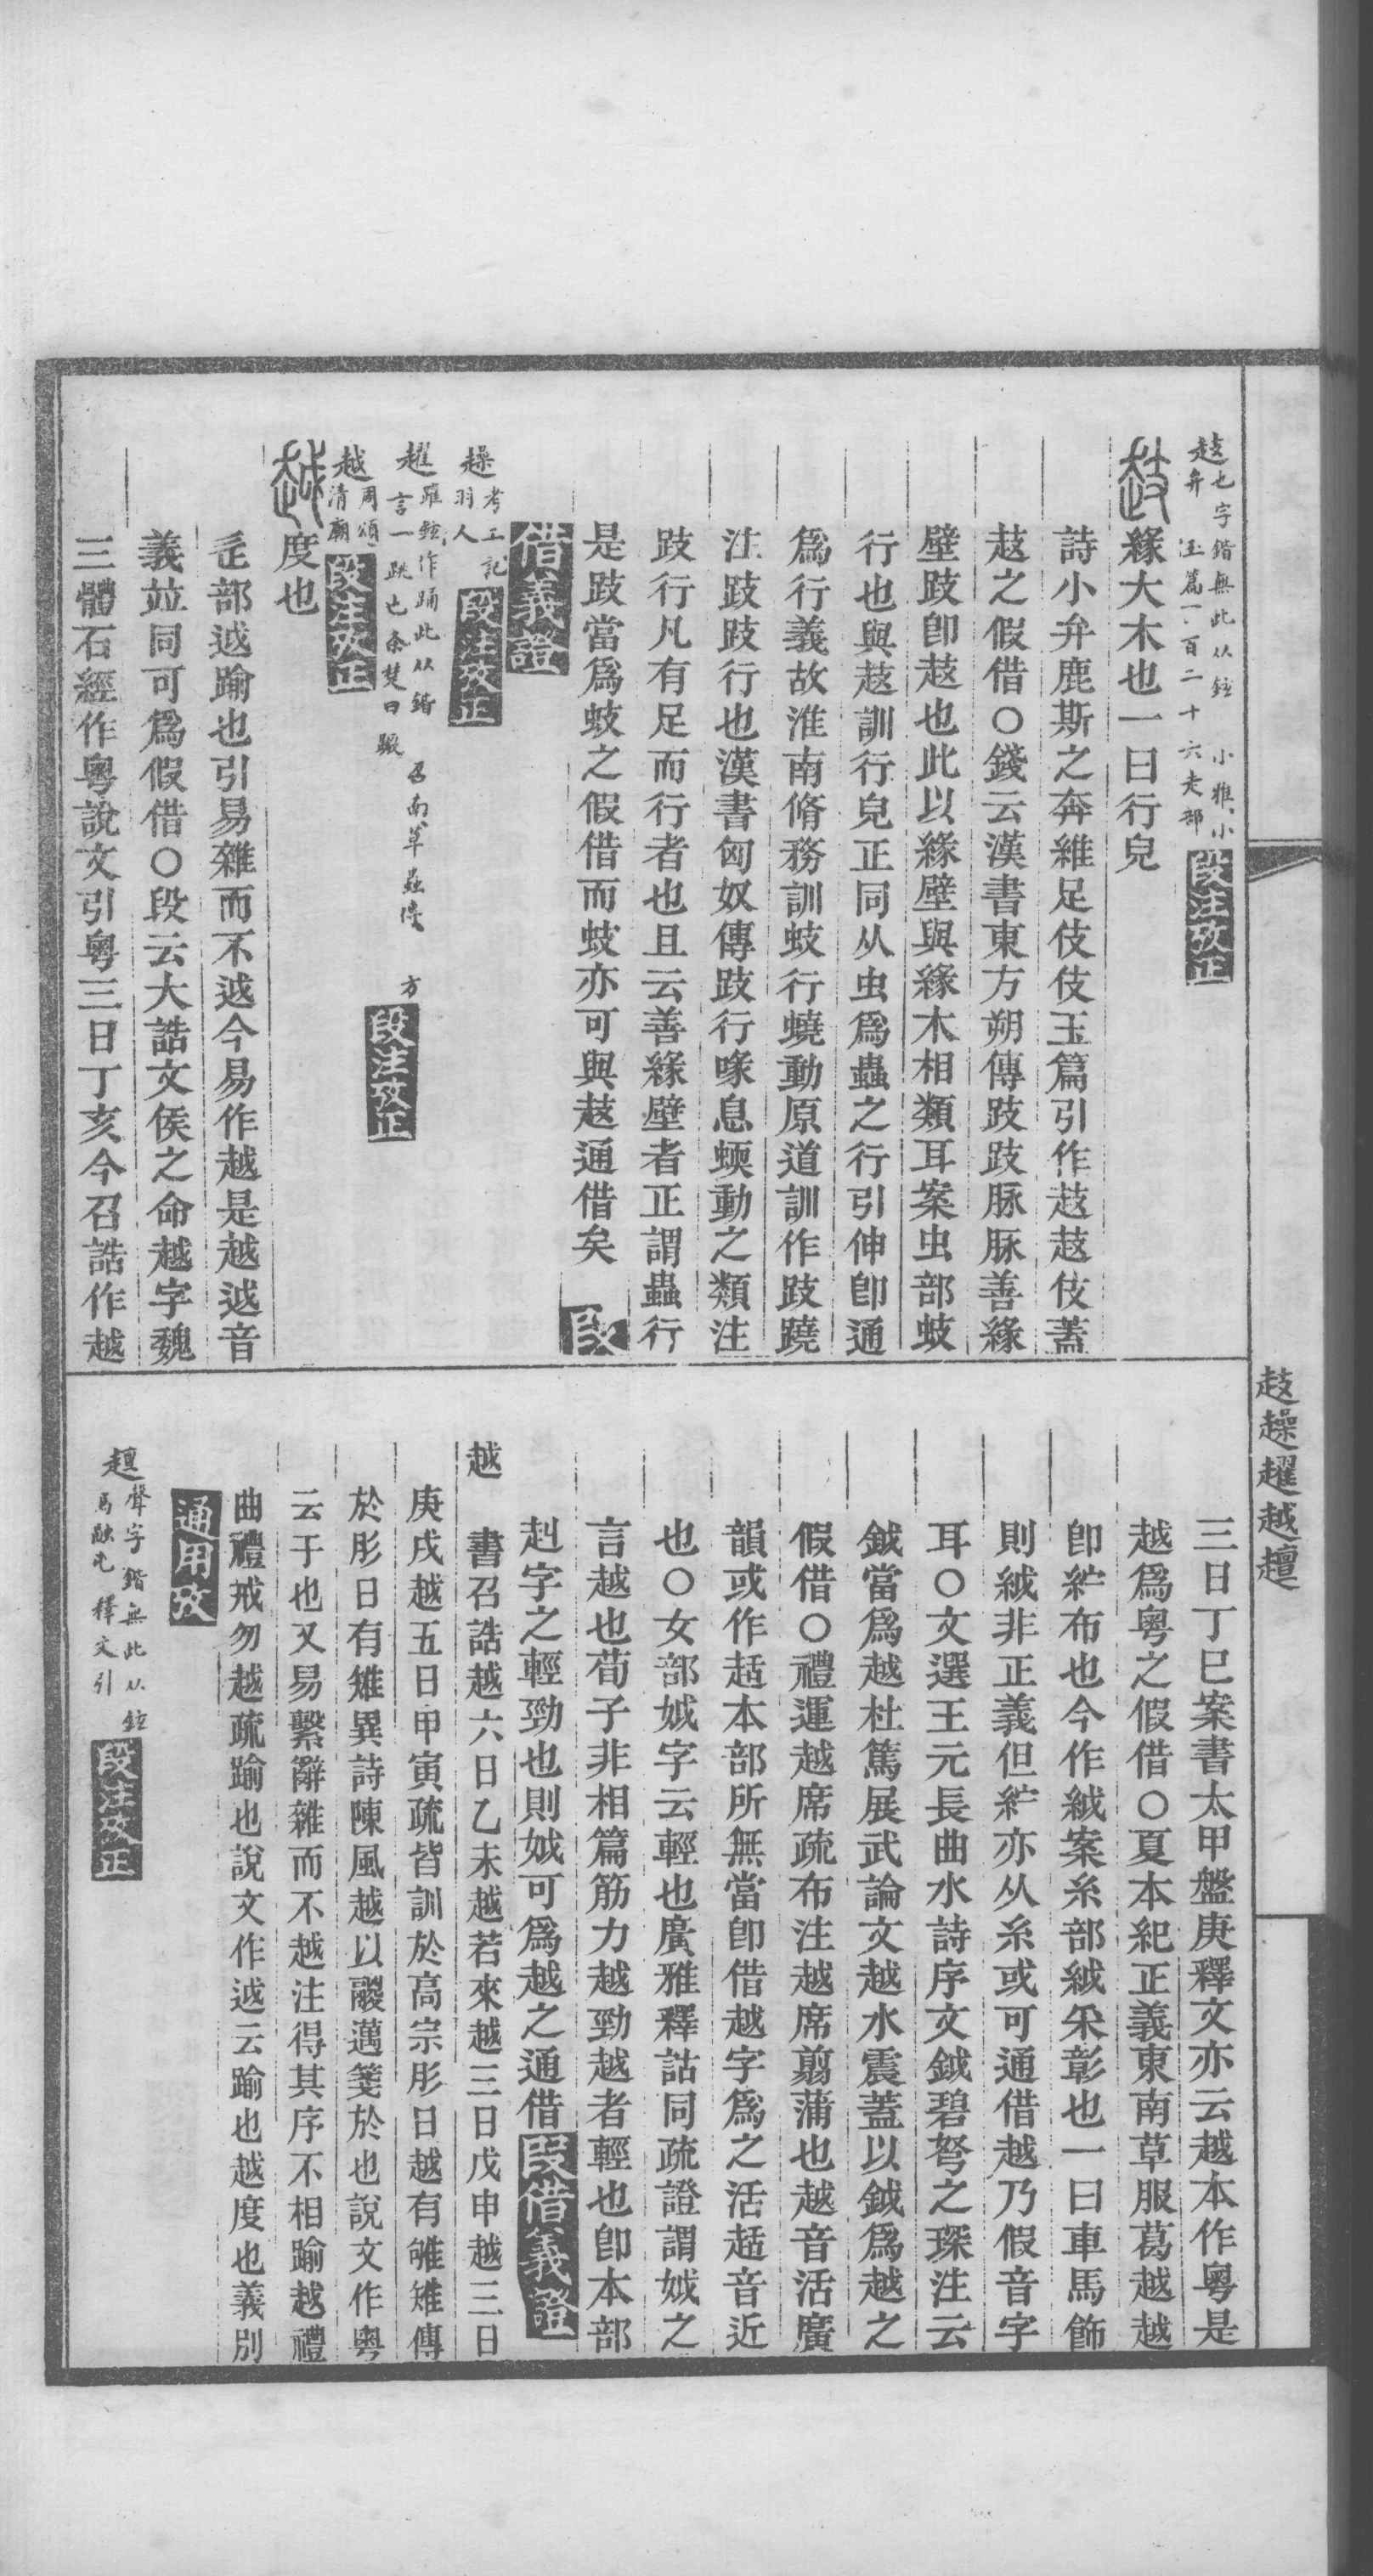 趌七字鍇無此以鉉 小雅小
弁 玉篇一百二十六走部 段注攷正
𧺆緣大木也一曰行皃
詩小弁鹿斯之奔維足伎伎玉篇引作𧺆𧺆伎蓋
𧺆之假借〇錢云漢書東方朔傳跂跂脉脉善緣
壁跂卽𧺆也此以緣壁與緣木相類耳案虫部蚑
行也與𧺆訓行皃正同从虫爲蟲之行引伸卽通
爲行義故淮南脩務訓蚑行蟯動原道訓作跂蹺
注跂跂行也漢書匈奴傳跂行喙息蝡動之類注
跂行凡有足而行者也且云善緣壁者正謂蟲行
是跂當爲蚑之假借而蚑亦可與𧺆通借矣 段
借義證
趮考工記
羽人 段注攷正
趯躍鉉作踊此从鍇
言一跌也余楚曰騣 召南草蟲 方 段注攷正
越周頌
清廟 段注攷正
越度也
辵部𨒋踰也引易雜而不𨒋今易作越是越𨒋音
義竝同可爲假借〇段云大誥文侯之命越字魏
三體石經作粵說文引粵三日丁亥今召誥作越
三日丁巳案書太甲盤庚釋文亦云越本作粵是
越爲粵之假借〇夏本紀正義東南草服葛越越
卽紵布也今作絾案糸部絾采彰也一曰車馬飾
則絾非正義但紵亦从糸或可通借越乃假音字
耳〇文選王元長曲水詩序文鉞碧砮之琛注云
鉞當爲越杜篤展武論文越水震蓋以鉞爲越之
假借〇禮運越席疏布注越席翦蒲也越音活廣
韻或作趏本部所無當卽借越字爲之活趏音近
也〇女部娍字云輕也廣雅釋詁同疏證謂娍之
言越也荀子非相篇筋力越勁越者輕也卽本部
赳字之輕勁也則娍可爲越之通借 段借義證
越 書召誥越六日乙未越若來越三日戊申越三日
庚戌越五日甲寅疏皆訓於高宗肜日越有雊雉傳
於肜日有雉異詩陳風越以鬷邁箋於也說文作粵
云于也又易繫辭雜而不越注得其序不相踰越禮
曲禮戒勿越疏踰也說文作𨒋云踰也越度也義別
通用攷
趩聲字鍇無此从鉉
馬融屯 釋文引 段注攷正
𧺆趮趯越趩